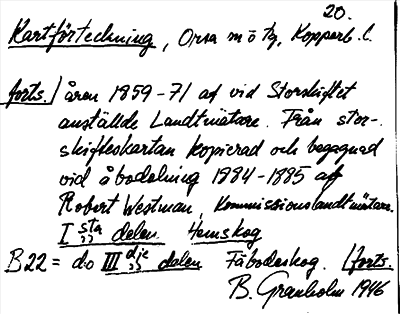 20.
Kartförteckning, Orsa m ö tg, Kopparb. l.
forts./ åren 1859-71 af vid Storskiftet
anställde Landtmätare. Från stor-
skifteskartan kopierad och begagnad
vid åbodelning 1884-1885 af
Robert Westman, Kommissionslandtmätare.
I sta delen Hemskog
B22 = d:o III dje delen Fäbodeskog. /forts.
B. Granholm 1946